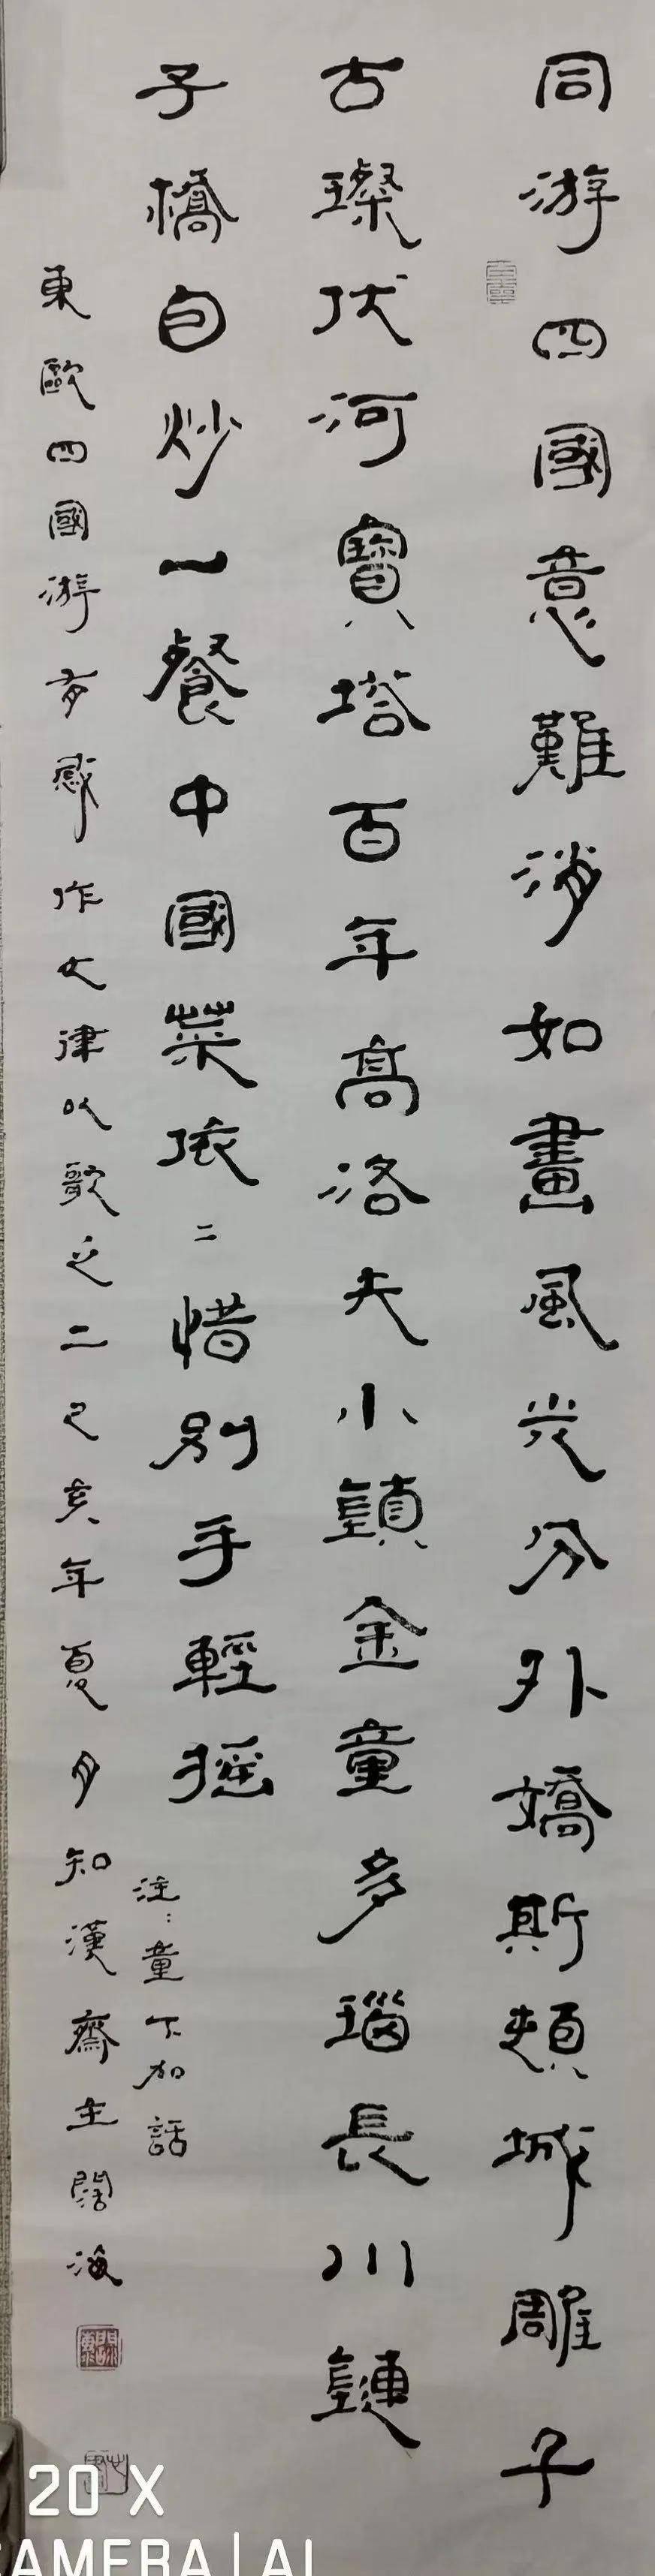 同游四國意難消如畫風光分外嬌斯頓城雕子
古璨伏河寶塔百年高洛夫小鎮金童多瑙長川鏈
子橋自炒一餐中國菜依二惜別手輕摇
注：童下加話
東歐四國游有感作七律以歌之二己亥年夏月知漢齋主闊海
20 X
CAMERA | AI